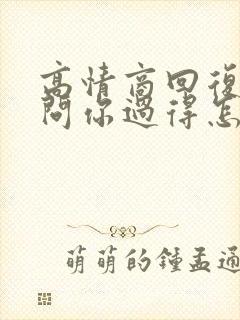 高情商回復
问你過得怎
萌萌的鍾孟通